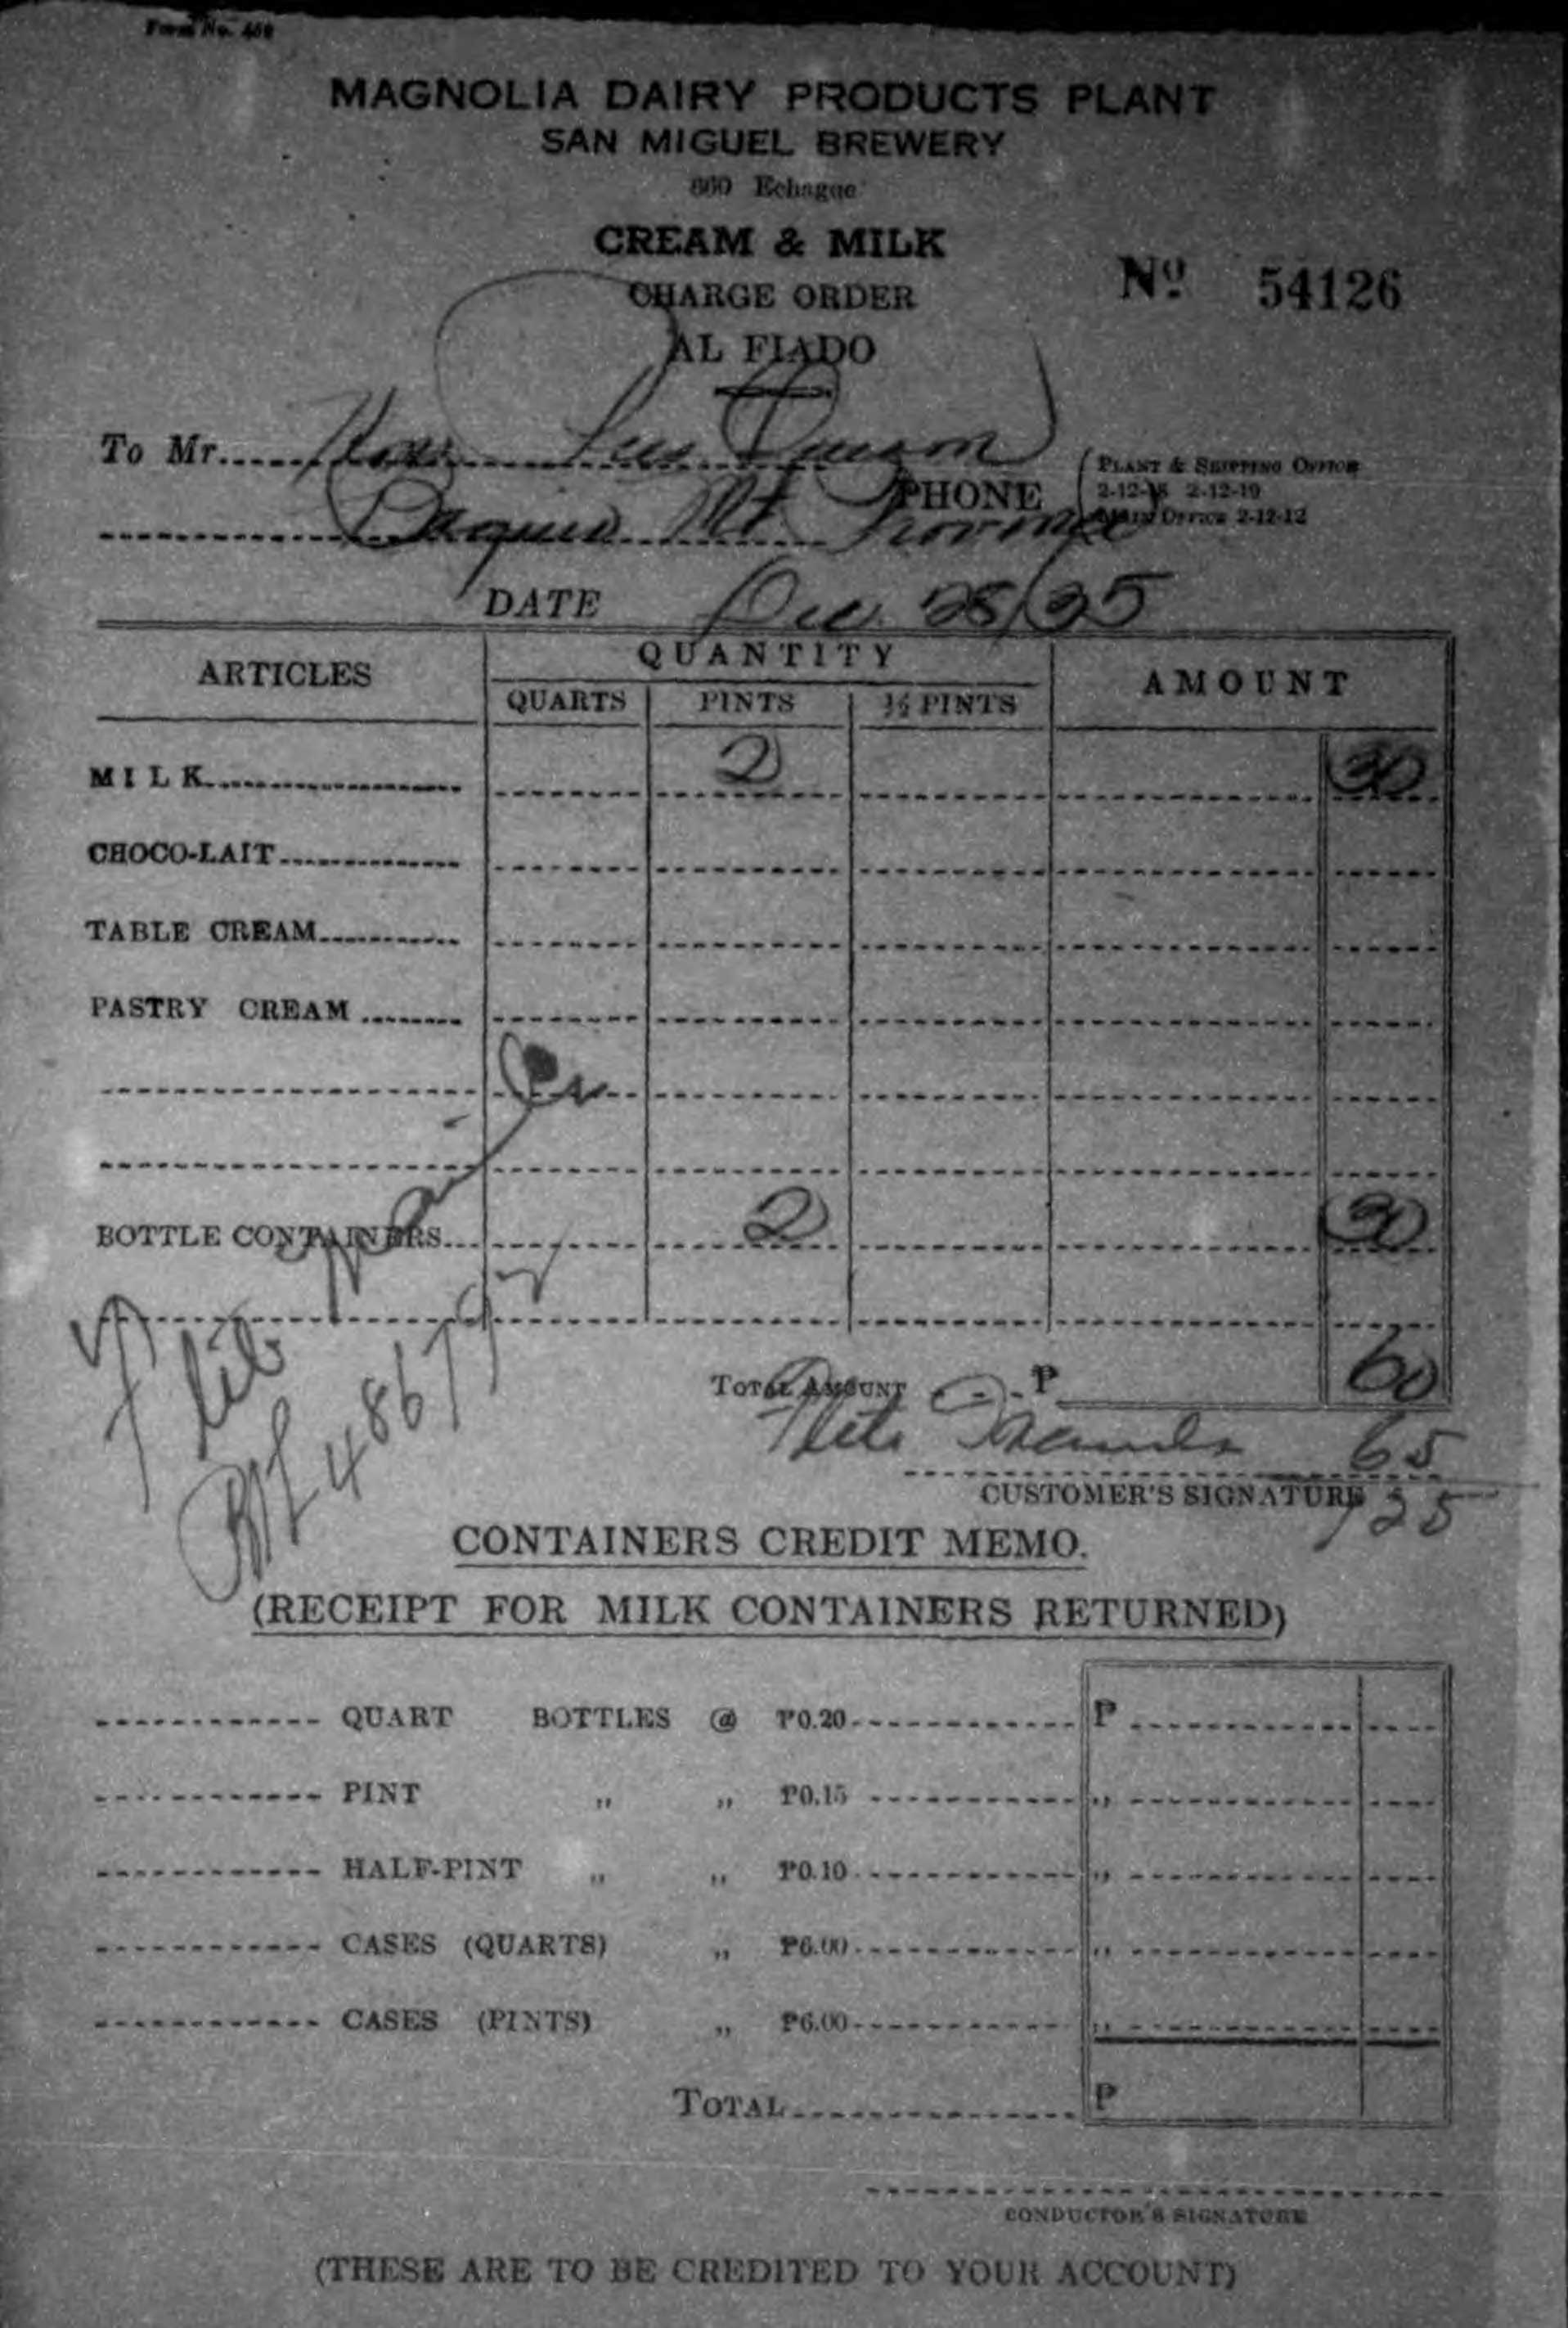 Form No. 459
MAGNOLIA DAIRY PRODUCTS PLANT
SAN MIGUEL BREWERY
860 Echague
CREAM & MILK
CHARGE ORDER
Nº 54126
AL FIADO
To Mr. Hon.
PLANT & SHIPPING OFFICE
PHONE 2-12-18 2-12-19
Baguio Mt. Province MAIN OFFICE 2-12-12
DATE Dec. 28/35
ARTICLES QUANTITY AMOUNT
QUARTS PINTS ½ PINTS
MILK 2 30
CHOCO-LAIT
TABLE CREAM
PASTRY CREAM
BOTTLE CONTAINERS 2 30
TOTAL AMOUNT ₱ 60
Flete Manila 65
CUSTOMER'S SIGNATURE 125
CONTAINERS CREDIT MEMO.
(RECEIPT FOR MILK CONTAINERS RETURNED)
QUART BOTTLES @ ₱0.20 ₱
PINT ,, ,, ₱0.15 ,,
HALF-PINT ,, ,, ₱0.10 ,,
CASES (QUARTS) ,, ₱6.00 ,,
CASES (PINTS) ,, ₱6.00 ,,
TOTAL ₱
CONDUCTOR'S SIGNATURE
(THESE ARE TO BE CREDITED TO YOUR ACCOUNT)